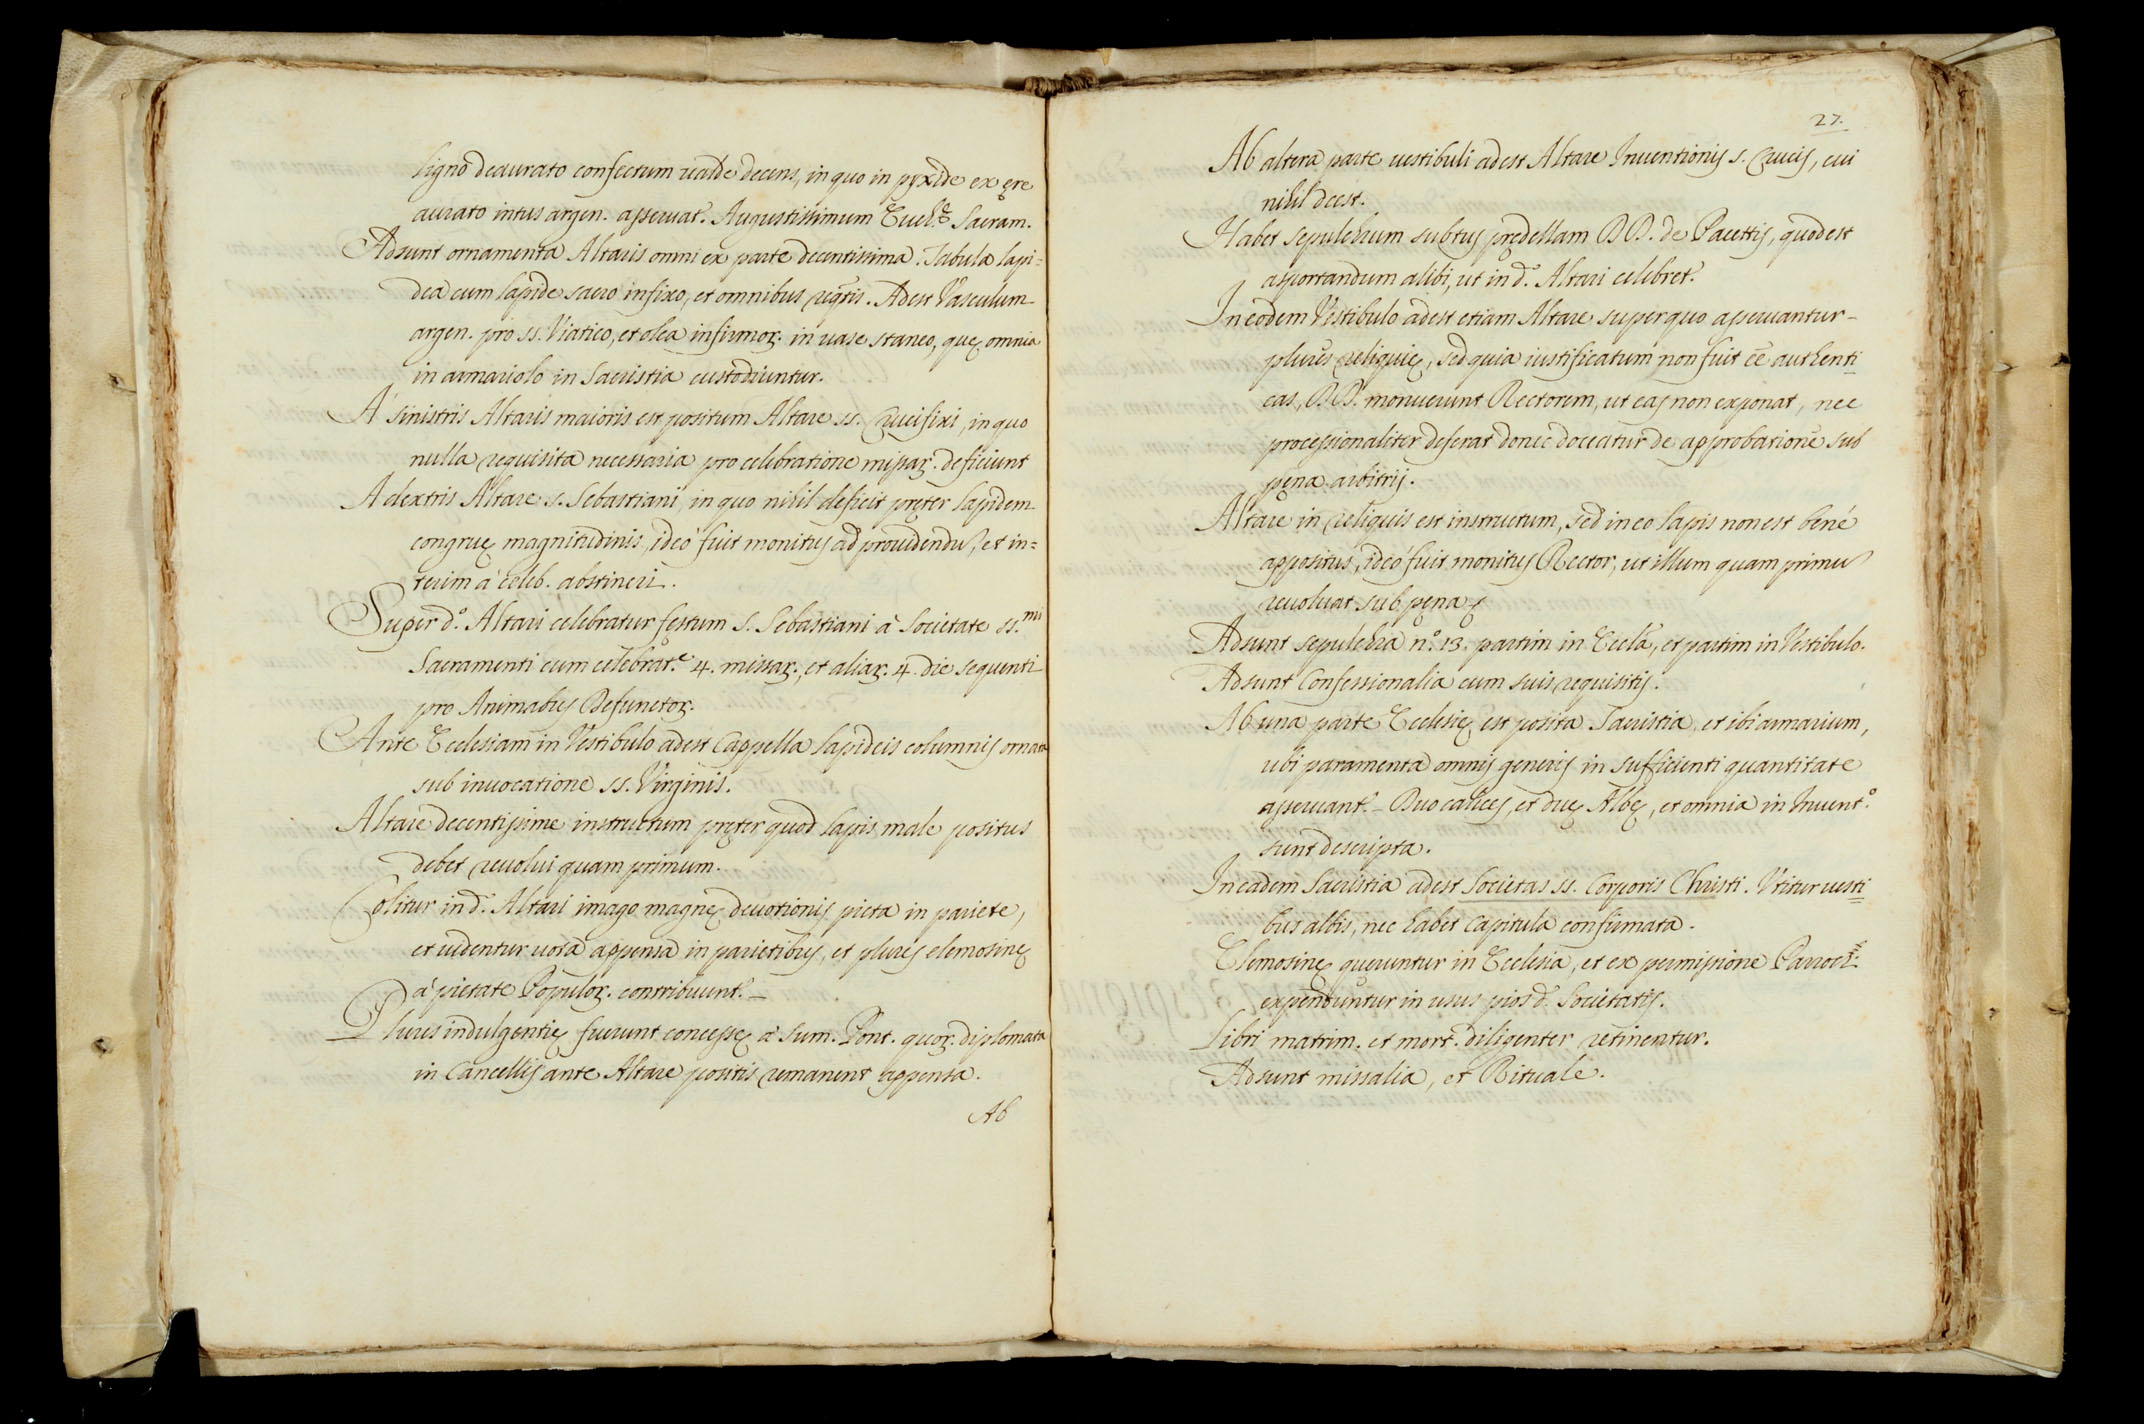 ligno deaurato confectum valde decens, in quo in pyxide ex ęre
aurato intus argen. asservat.r Augustissimum Euch.ę Sacram.
Adsunt ornamenta Altaris omni ex parte decentissima. Tabula lapi=
dea cum lapide sacro infixo, et omnibus reqtis. Adest Vasculum
argen. pro ss. Viatico, et olea infirmor. in vase staneo, quę omnia
in armariolo in Sacristia custodiuntur.
A' sinistris Altaris maioris est positum Altare ss. Crucifixi, in quo
nulla requisita necessaria pro celebratione missar. deficiunt
A dextris Altare s. Sebastiani, in quo nihil deficit pręter lapidem
congruę magnitudinis, ideò fuit monitus ad providendū, et in=
terim à celeb. abstineri.
Super d.o Altari celebratur festum S. Sebastiani à Societate ss.mi
Sacramenti cum celebrat.e 4. missar., et aliar. 4. die sequenti
pro Animabus Defunctor.
Ante Ecclesiam in Vestibulo adest Cappella lapideis columnis ornata
sub invocatione ss. Virginis.
Altare decentissime instructum pręter quod lapis male positus
debet revolvi quam primum.
Colitur in d.o Altari imago magnę devotionis picta in pariete,
et videntur vota appensa in parietibus, et plures elemosinę
à pietate Populor. contribuunt.r
Plures indulgentię fuerunt concessę à Sum. Pont. quor. diplomata
in Cancellis ante Altare positis remanent appensa.
Ab
27.
Ab altera parte vestibuli adest Altare Inventionis s. Crucis, cui
nihil deest.
Habet sepulchrum subtus prędellam DD. de Pacettis, quod est
asportandum alibi, ut in d.o Altari celebret.r
In eodem Vestibulo adest etiam Altare super quo asservantur
plures reliquię, sed quia iustificatum non fuit eē authenti=
cas, DD. monuerunt Rectorem, ut eas non exponat, nec
processionaliter deferat donec doceatur de approbatione sub
pęna arbitrij.
Altare in reliquis est instructum, sed in eo lapis non est bené
appositus, ideó fuit monitus Rector, ut illum quam primū
revolvat sub pęna
Adsunt sepulchra n.o 13. partim in Eccła, et partim in Vestibulo.
Adsunt Confessionalia cum suis requisitis.
Ab una parte Ecclesię est posita Sacristia, et ibi armarium,
ubi paramenta omnis generis in sufficienti quantitate
asservant.r Duo calices, et duę Albę, et omnia in Invent.o
sunt descripta.
In eadem Sacristia adest Societas ss. Corporis Christi. Utitur vesti=
bus albis, nec habet Capitula confirmata.
Elemosinę queruntur in Ecclesia, et ex permissione Parroch.
expenduntur in usus pios d. Societatis.
Libri matrim. et mort. diligenter retinentur.
Adsunt missalia, et Rituale.